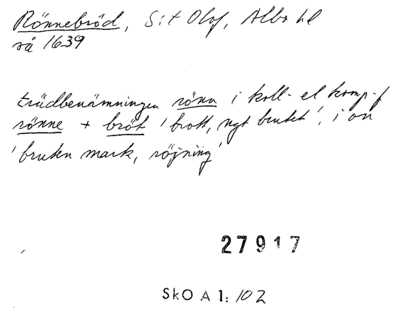 Rönnebröd, S:t Olof, Albo hd
så 1639
trädbenämningen rönn i koll- el komp-f
rönne + bröt 'brott, nyt brukt', i on
'bruten mark, röjning'
27917
SkO A 1: 102